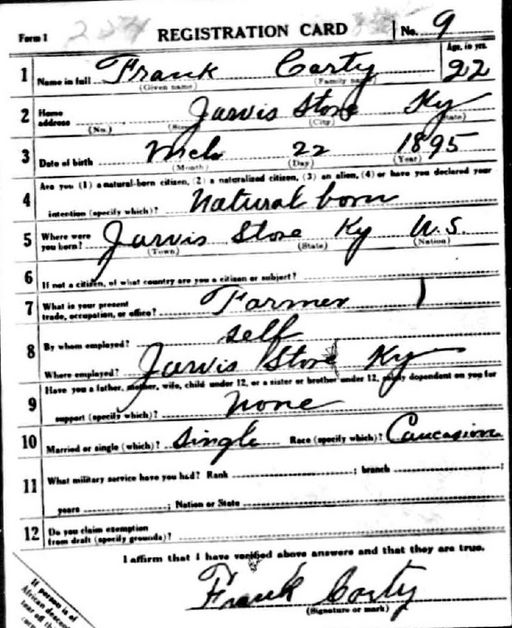 Form 1 REGISTRATION CARD No. 9
Age, in yrs.
1 Name in full Frank Carty 22
(Given name) (Family name)
2 Home address Jarvis Store Ky
(No.) (Street) (City) (State)
3 Date of birth Mch 22 1895
(Month) (Day) (Year)
Are you (1) a natural-born citizen, (2) a naturalized citizen, (3) an alien, (4) or have you declared your
4 intention (specify which)? Natural born
5 Where were you born? Jarvis Store Ky U.S.
(Town) (State) (Nation)
6 If not a citizen, of what country are you a citizen or subject?
7 What is your present trade, occupation, or office? Farmer
8 By whom employed? self
Where employed? Jarvis Store Ky
Have you a father, mother, wife, child under 12, or a sister or brother under 12, solely dependent on you for
9 support (specify which)? none
10 Married or single (which)? Single Race (specify which)? Caucasion
11 What military service have you had? Rank ; branch ;
years ; Nation or State
12 Do you claim exemption from draft (specify grounds)?
I affirm that I have verified above answers and that they are true.
Frank Carty
(Signature or mark)
If person is of
African descent
tear off th